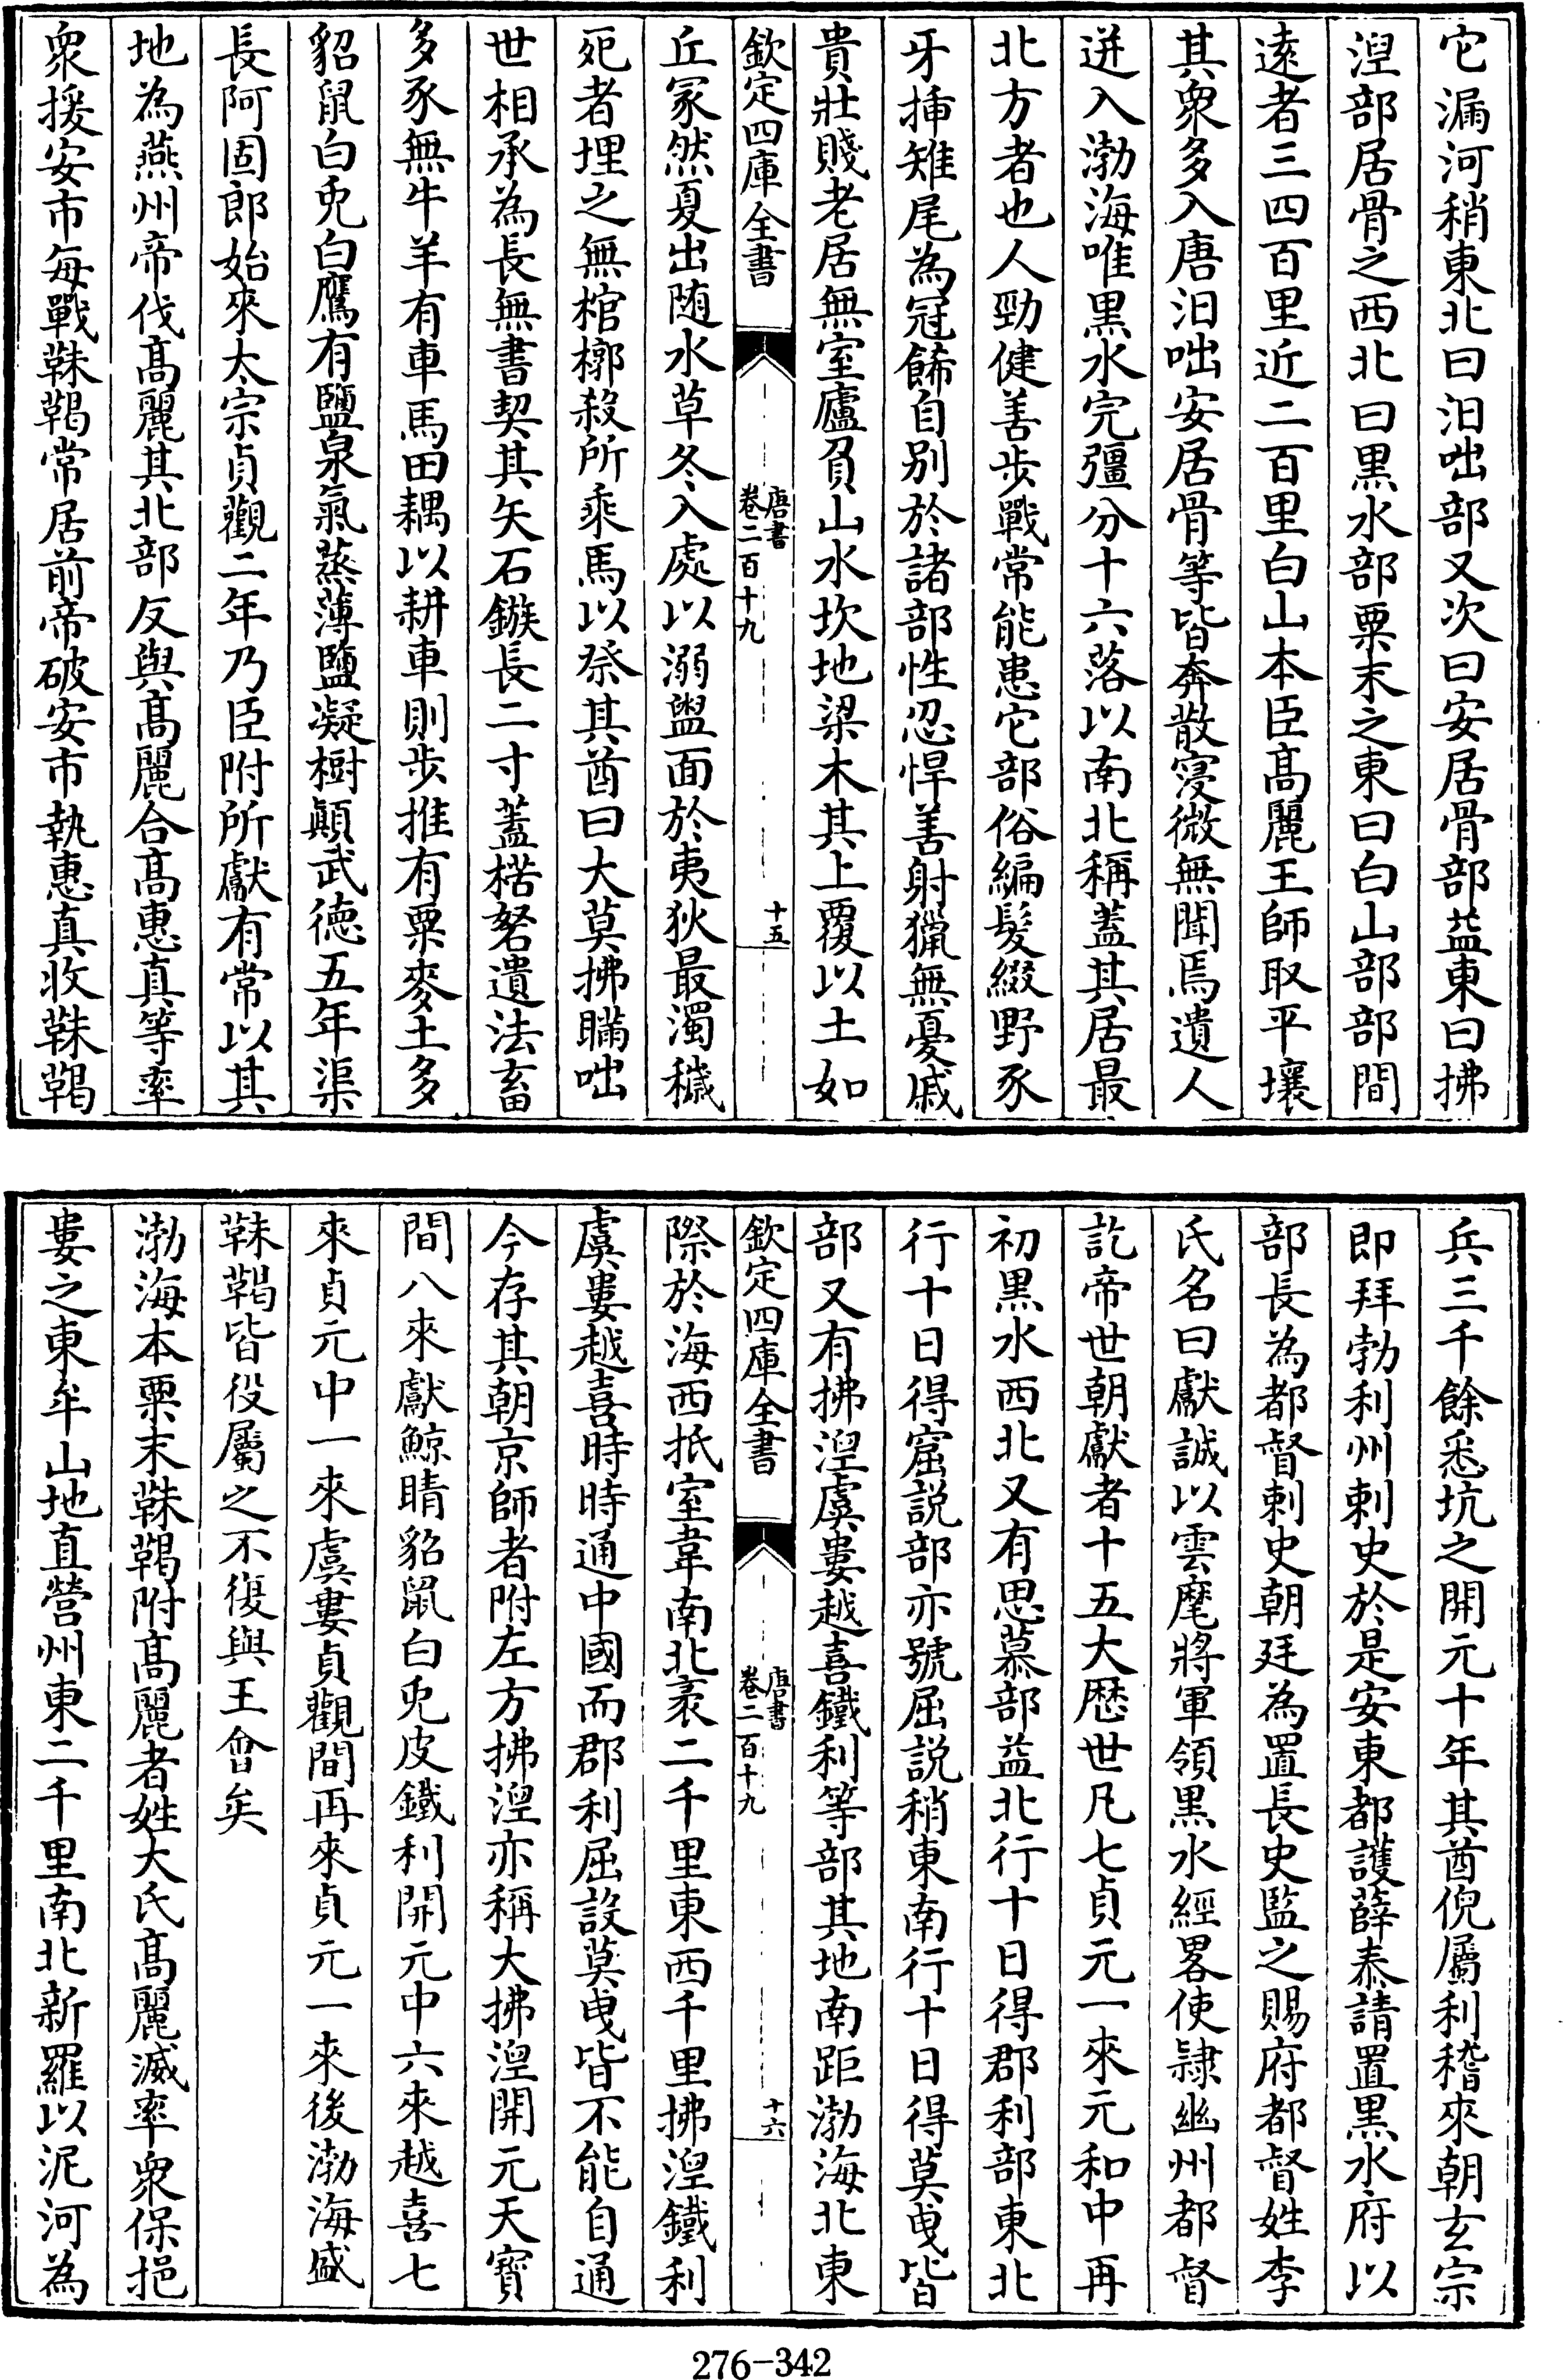 它漏河稍東北曰汨咄部又次曰安居骨部益東曰拂
涅部居骨之西北曰黒水部粟末之東曰白山部部間
逺者三四百里近二百里白山本臣髙麗王師取平壤
其衆多入唐汨咄安居骨等皆奔散寖微無聞焉遺人
迸入渤海唯黒水完彊分十六落以南北稱蓋其居最
北方者也人勁健善歩戰常能患它部俗編髮綴野豕
牙揷雉尾為冠飾自别於諸部性忍悍善射獵無憂戚
貴壯賤老居無室廬負山水坎地梁木其上覆以土如
欽定四庫全書
唐書
卷二百十九
十五
丘冢然夏出随水草冬入處以溺盥面於夷狄最濁穢
死者埋之無棺槨殺所乘馬以祭其酋曰大莫拂瞞咄
世相承為長無書契其矢石鏃長二寸蓋楛砮遺法畜
多豕無牛羊有車馬田耦以耕車則歩推有粟麥土多
貂鼠白兎白鷹有鹽泉氣蒸薄鹽凝樹顚武徳五年渠
長阿固郎始來太宗貞觀二年乃臣附所獻有常以其
地為燕州帝伐髙麗其北部反與髙麗合髙惠真等率
衆援安市每戰靺鞨常居前帝破安市執惠真收靺鞨
兵三千餘悉坑之開元十年其酋倪屬利稽來朝玄宗
即拜勃利州刺史於是安東都護薛泰請置黒水府以
部長為都督刺史朝廷為置長史監之賜府都督姓李
氏名曰獻誠以雲麾將軍領黒水經畧使隷幽州都督
訖帝世朝獻者十五大厯世凡七貞元一來元和中再
初黒水西北又有思慕部益北行十日得郡利部東北
行十日得窟説部亦號屈説稍東南行十日得莫曳皆
部又有拂涅虞婁越喜鐵利等部其地南距渤海北東
欽定四庫全書
唐書
卷二百十九
十六
際於海西抵室韋南北袤二千里東西千里拂涅鐵利
虞婁越喜時時通中國而郡利屈設莫曳皆不能自通
今存其朝京師者附左方拂涅亦稱大拂涅開元天寳
間八來獻鯨睛貂鼠白兎皮鐵利開元中六來越喜七
來貞元中一來虞婁貞觀間再來貞元一來後渤海盛
靺鞨皆役屬之不復與王㑹矣
渤海本粟末靺鞨附髙麗者姓大氏髙麗滅率衆保挹
婁之東牟山地直營州東二千里南北新羅以泥河為
276-342